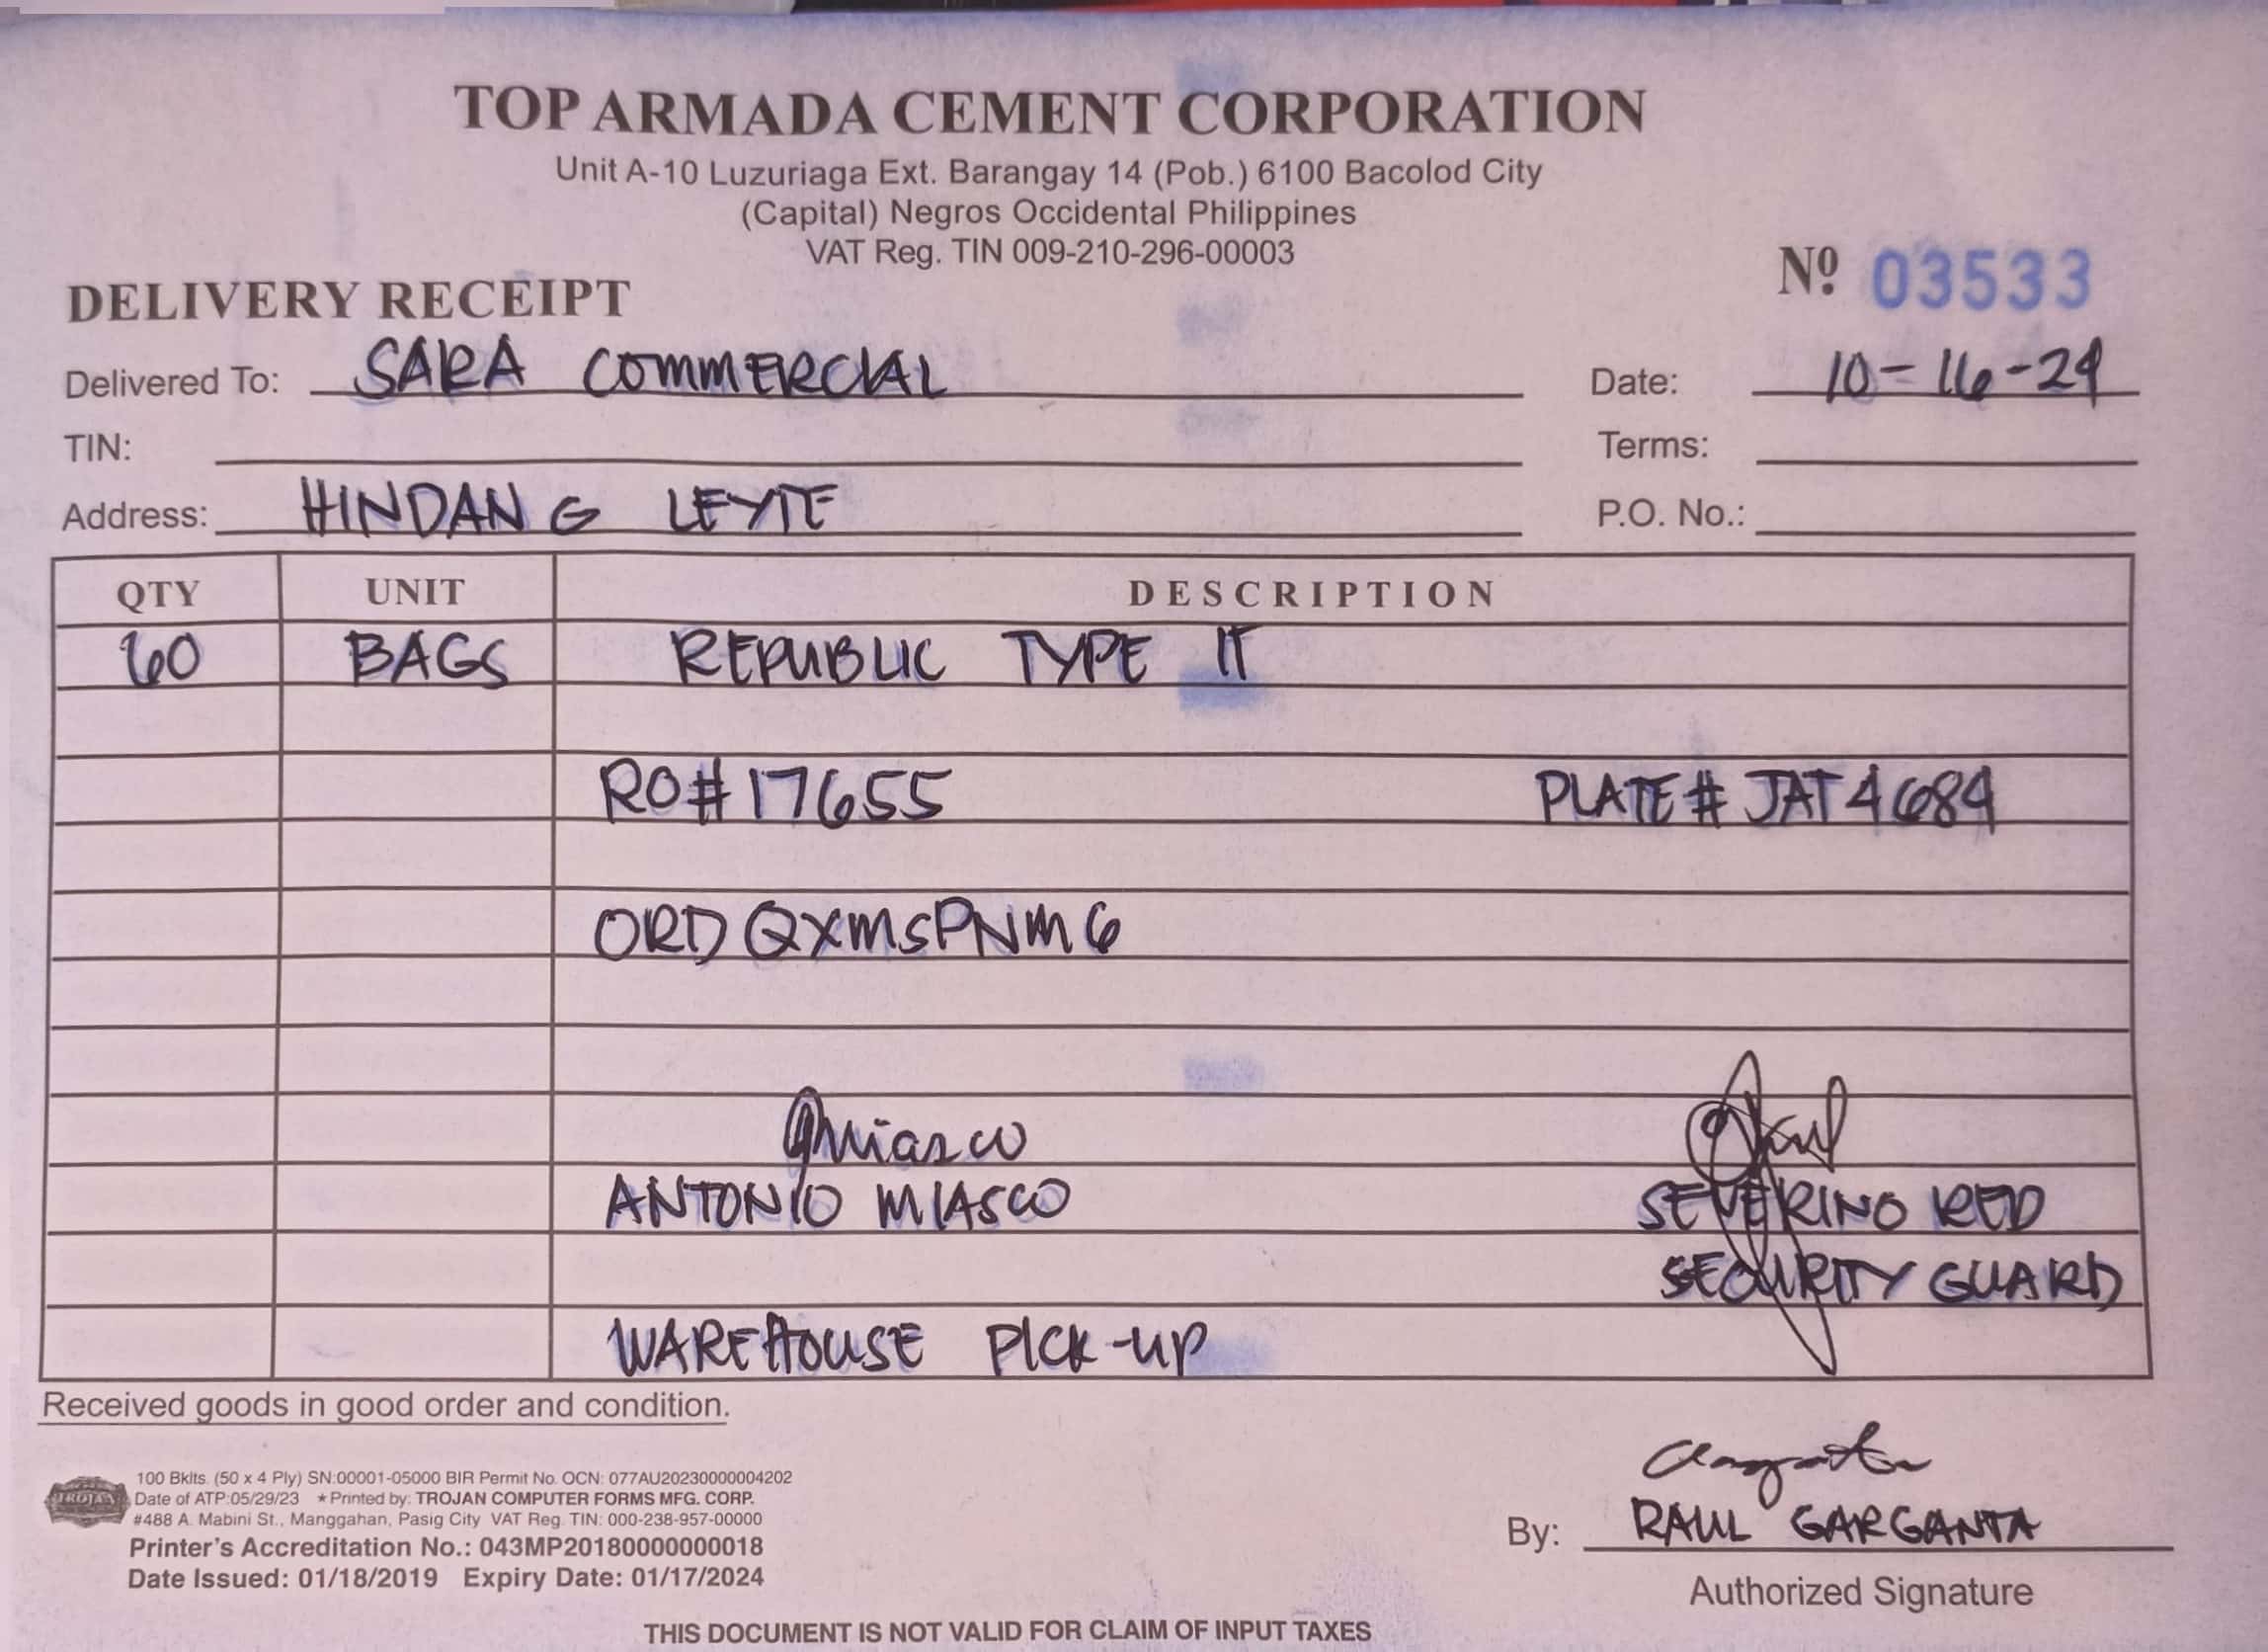 TOP ARMADA CEMENT CORPORATION
Unit A-10 Luzuriaga Ext. Barangay 14 (Pob.) 6100 Bacolod City
(Capital) Negros Occidental Philippines
VAT Reg. TIN 009-210-296-00003
Nº 03533
DELIVERY RECEIPT
Delivered To: SARA COMMERCIAL Date: 10-16-24
TIN: Terms:
Address: HINDANG LEYTE P.O. No.:
QTY UNIT DESCRIPTION
60 BAGS REPUBLIC TYPE IT
RO#17655 PLATE # JAT 4684
ORD QXMSPNM6
AMiasco
ANTONIO MIASCO SEVERINO RED
SECURITY GUARD
WAREHOUSE PICK-UP
Received goods in good order and condition.
100 Bklts. (50 x 4 Ply) SN:00001-05000 BIR Permit No. OCN: 077AU20230000004202
TROJAN Date of ATP:05/29/23 ★Printed by: TROJAN COMPUTER FORMS MFG. CORP.
#488 A. Mabini St., Manggahan, Pasig City VAT Reg. TIN: 000-238-957-00000
Printer's Accreditation No.: 043MP20180000000018
Date Issued: 01/18/2019 Expiry Date: 01/17/2024
By: RAUL GARGANTA
Authorized Signature
THIS DOCUMENT IS NOT VALID FOR CLAIM OF INPUT TAXES